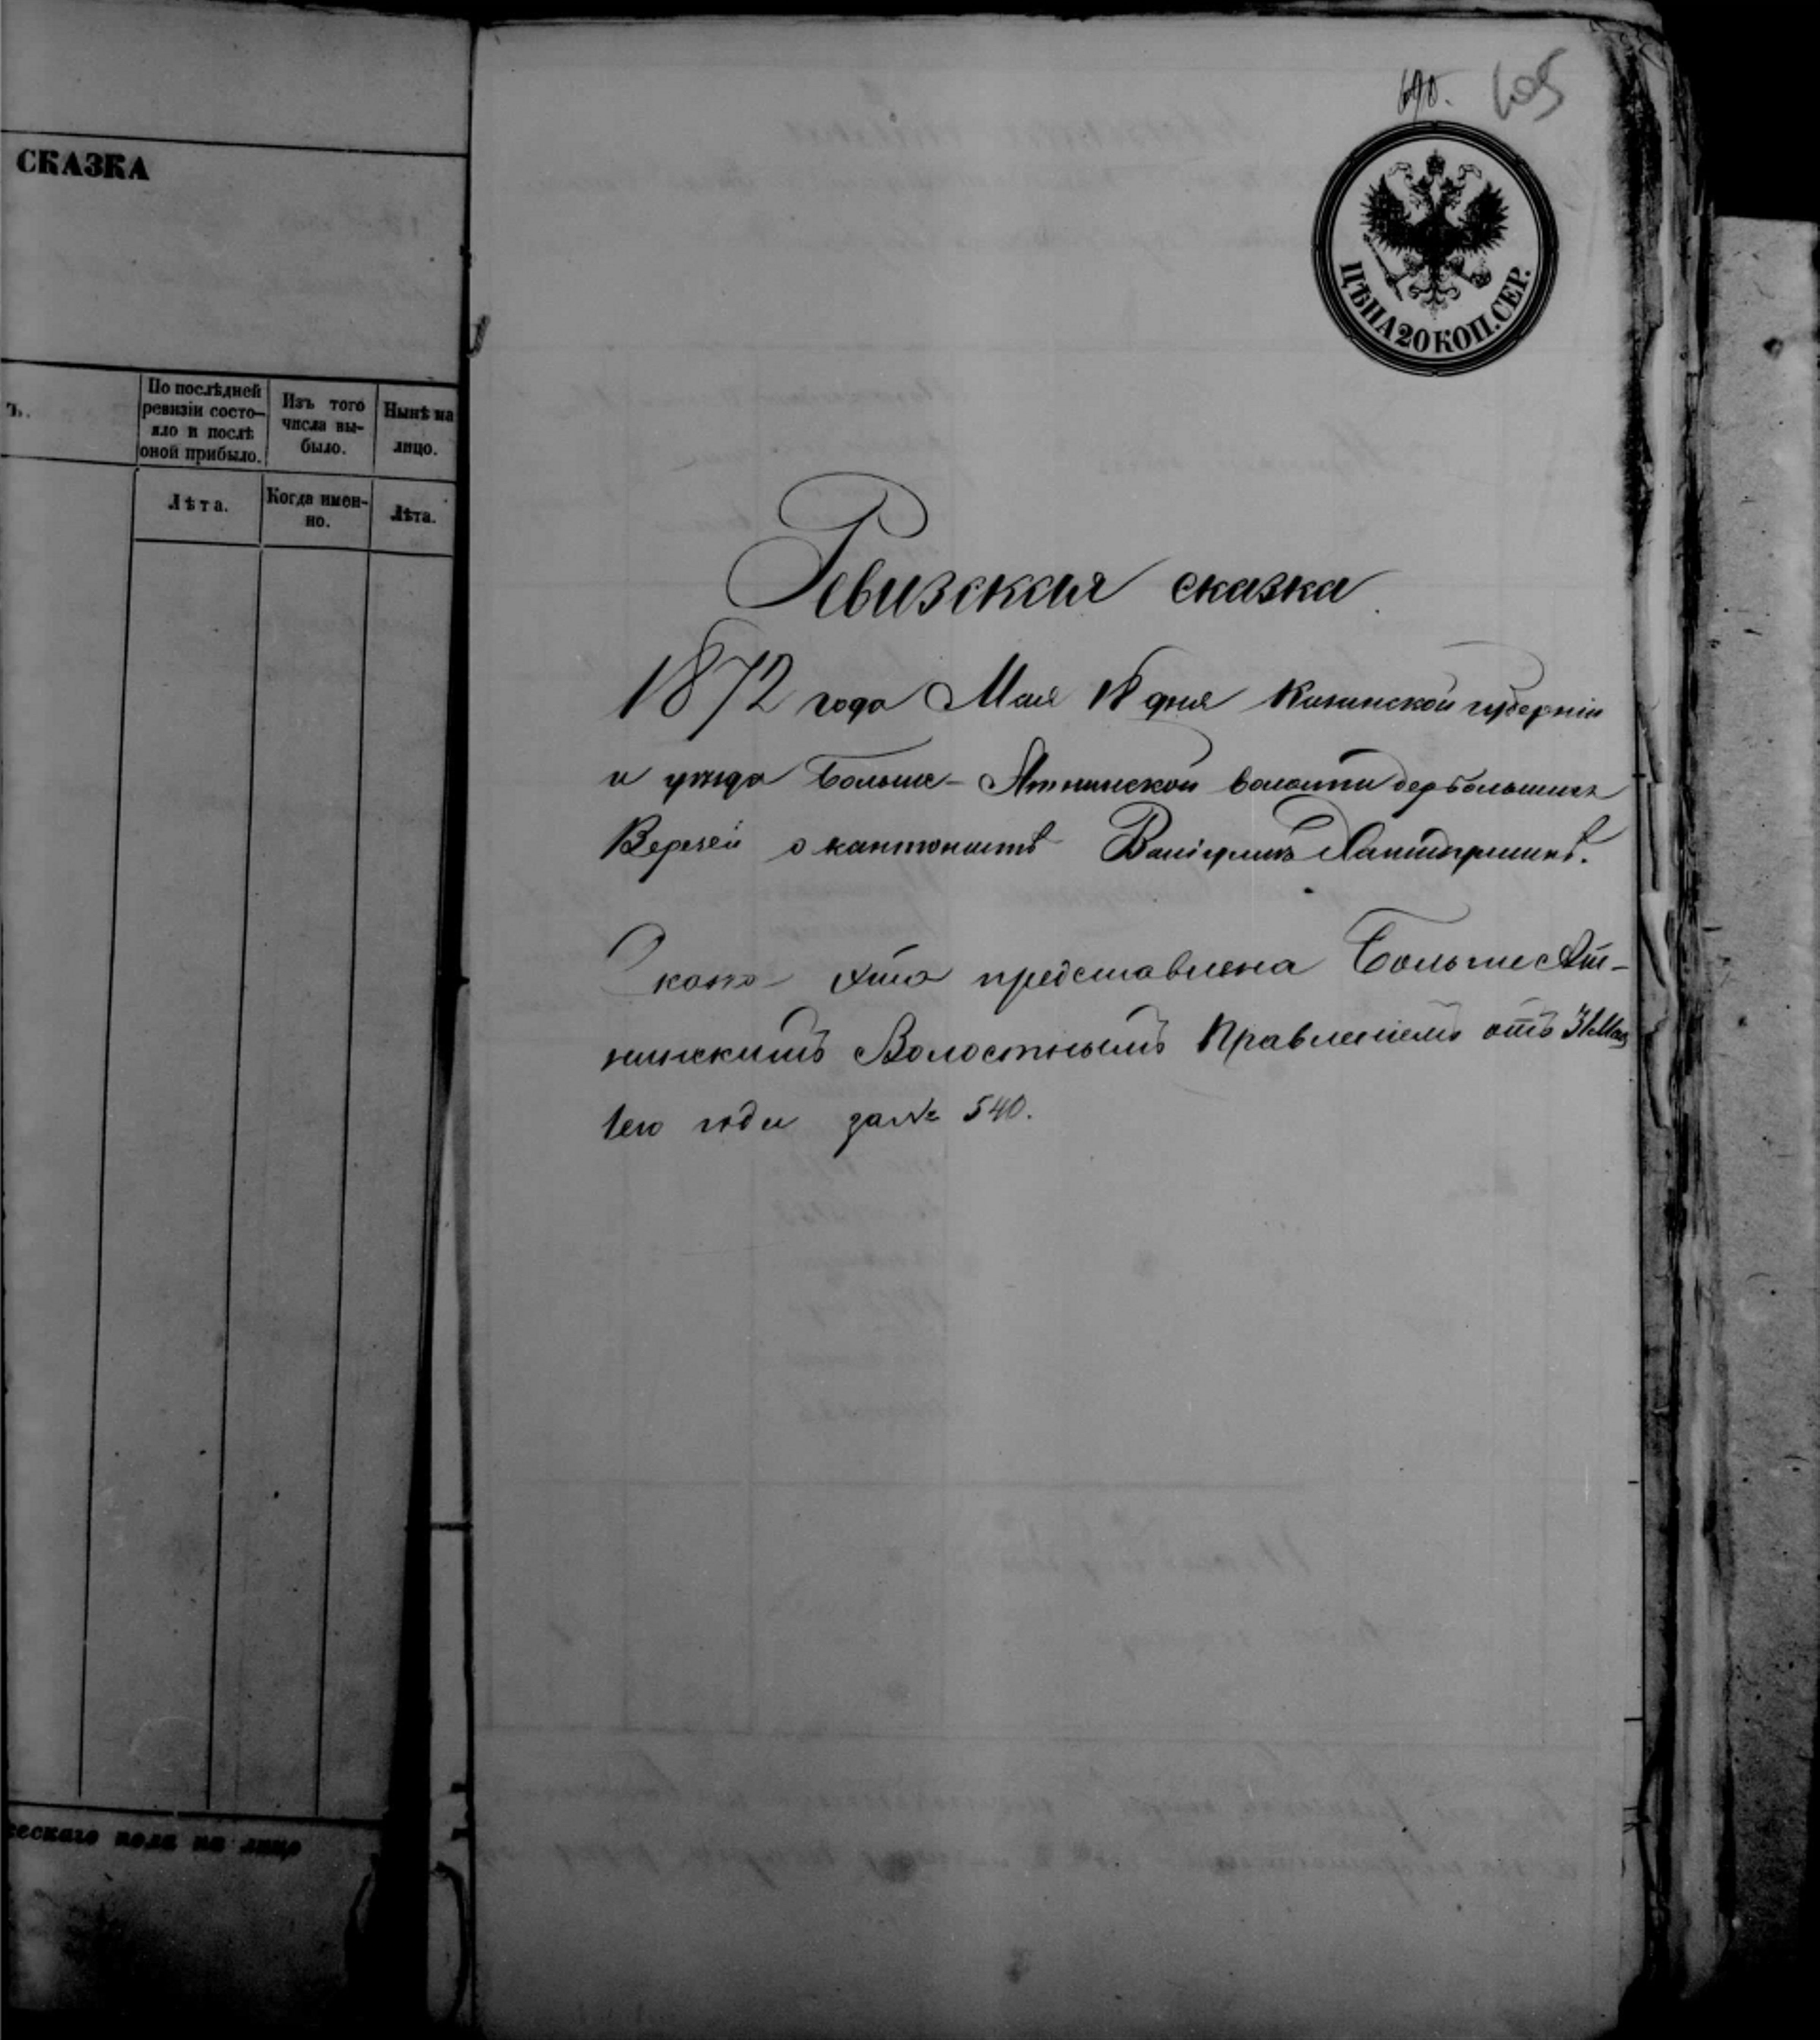 СКАЗКА
ъ.
По послѣдней ревизіи состо-
яло и послѣ
оной прибыло.
Изъ того
числа вы-
было.
Нынѣ на
лицо.
Лѣта.
Когда имен-
но.
Лѣта.
ческаго пола на лицо
690.
605
ЦѢНА 20 КОП. СЕР.
Ревизская сказка
1872 года Мая 18 дня Казанской губерніи
и уѣзда Больше-Атнинской волости дер Большихъ
Верезей о кантонистѣ
Сказка эта представлена Больше Ат-
нинскимъ Волостнымъ Правленіемъ отъ 31 Мая
сего года за № 540.